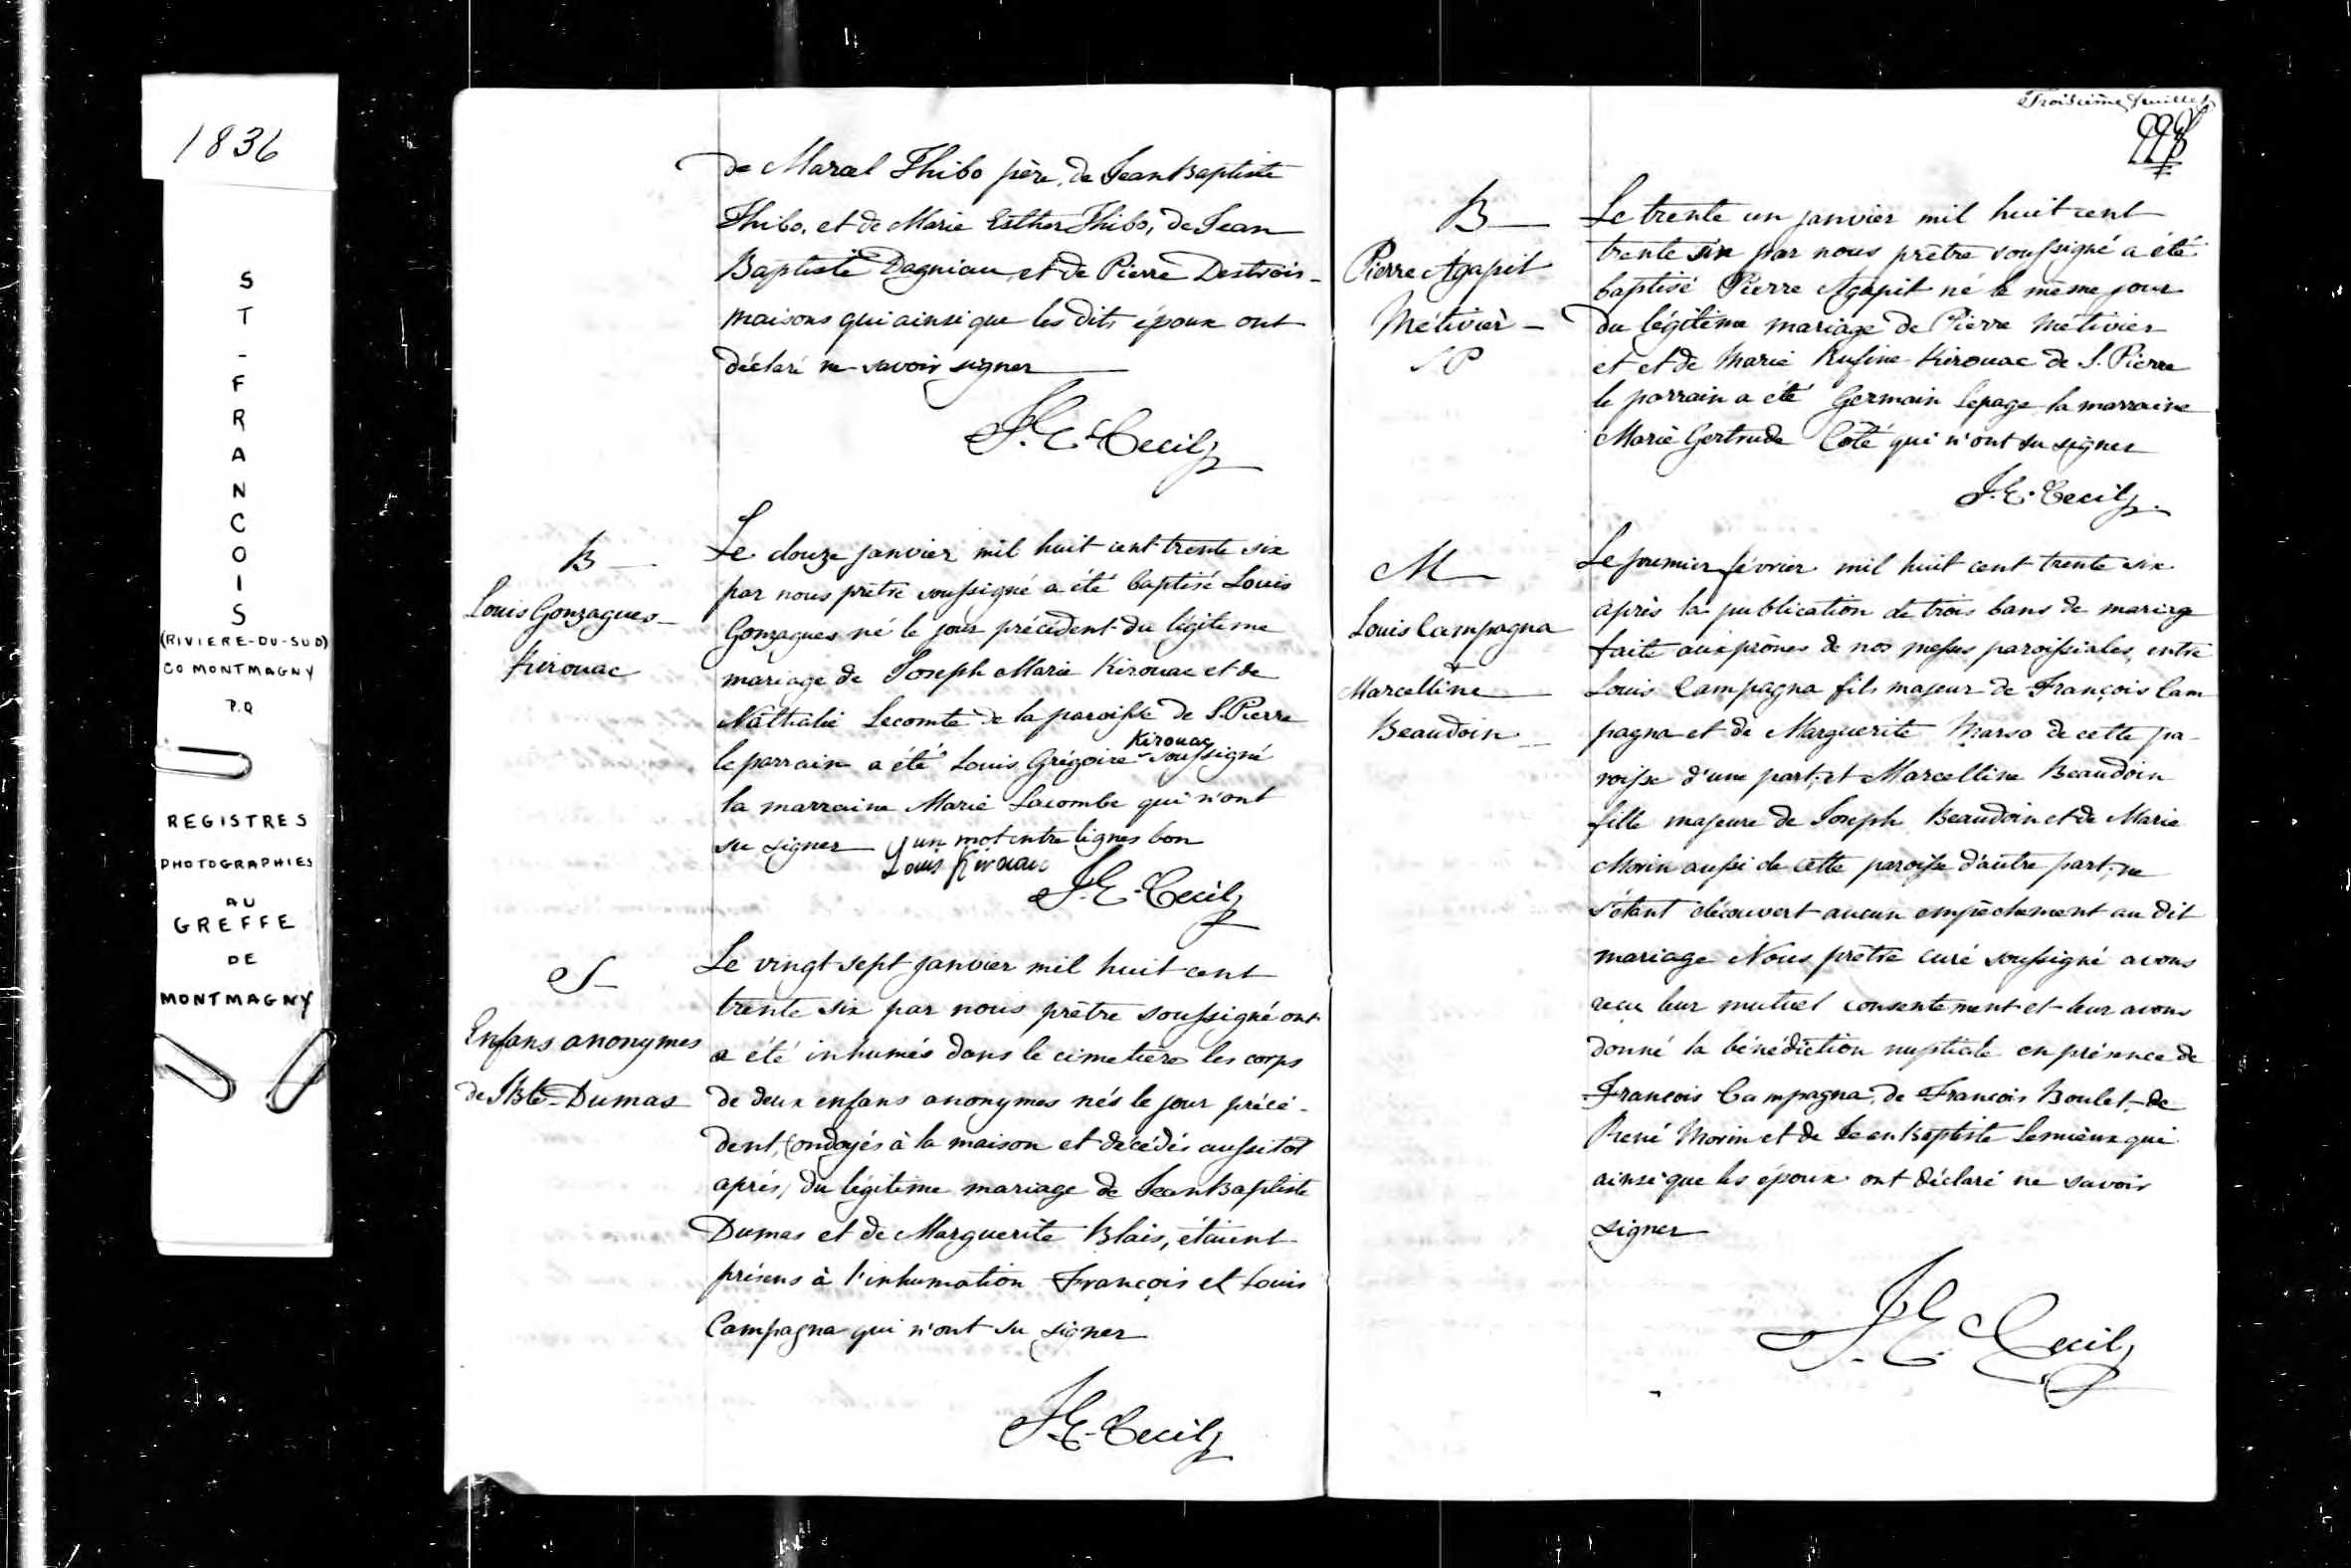 1836
ST-FRANCOIS
(RIVIERE-DU-SUD)
CO MONTMAGNY
P.Q
REGISTRES
PHOTOGRAPHIES
AU
GREFFE
DE
MONTMAGNY
de Marcel Thibo père, de Jean Baptiste
Thibo, et de Marie Esther Thibo, de Jean
Baptiste Dagniau et de Pierre Destrois-
maisons qui ainsi que les dits époux ont
déclaré ne savoir signer
J. E. Cecil
B
Louis Gonzagues
Kirouac
Le douze janvier mil huit cent trente six
par nous prêtre soussigné a été baptisé Louis
Gonzagues né le jour précédent du légitime
mariage de Joseph Marie Kirouac et de
Nathalie Lecomte de la paroisse de S. Pierre
Kirouac
le parrain a été Louis Grégoire soussigné
la marraine Marie Lacombe qui n'ont
su signer un mot entre lignes bon
Louis Kirouac
J. E. Cecil
S
Enfans anonymes
de J Bte Dumas
Le vingt sept janvier mil huit cent
trente six par nous prêtre soussigné ont
a été inhumés dans le cimetière les corps
de deux enfans anonymes nés le jour précé-
dent, (ondoyés à la maison et décédés aussitot
après) du légitime mariage de Jean Baptiste
Dumas et de Marguerite Blais, étaient
présens à l'inhumation François et Louis
Campagna qui n'ont su signer
J. E. Cecil
Troisième feuillet
B
Pierre Agapit
Métivier
SP
Le trente un janvier mil huit cent
trente six par nous prêtre soussigné a été
baptisé Pierre Agapit né le même jour
du légitime mariage de Pierre Métivier
et et de Marie Rufine Kirouac de S. Pierre
le parrain a été Germain Lepage la marraine
Marie Gertrude Côté qui n'ont su signer
J. E. Cecil
M
Louis Campagna
+
Marcelline
Beaudoin
Le premier février mil huit cent trente six
après la publication de trois bans de mariage
faite aux prônes de nos messes paroissiales, entre
Louis Campagna fils majeur de François Cam
pagna et de Marguerite Marso de cette pa-
roisse d'une part; et Marcelline Beaudoin
fille majeure de Joseph Beaudoin et de Marie
Morin aussi de cette paroisse d'autre part; ne
s'étant découvert aucun empêchement au dit
mariage Nous prêtre curé soussigné avons
reçu leur mutuel consentement et leur avons
donné la bénédiction nuptiale en présence de
François Campagna, de François Boulet, de
René Morin et de Jean Baptiste Lemieux qui
ainsi que les époux ont déclaré ne savoir
signer
J. E. Cecil